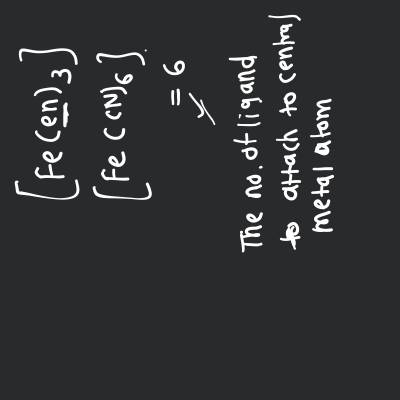 [Fe(en)3]
[Fe(CN)6].
= 6
The no. of ligand
to attach to central
metal atom